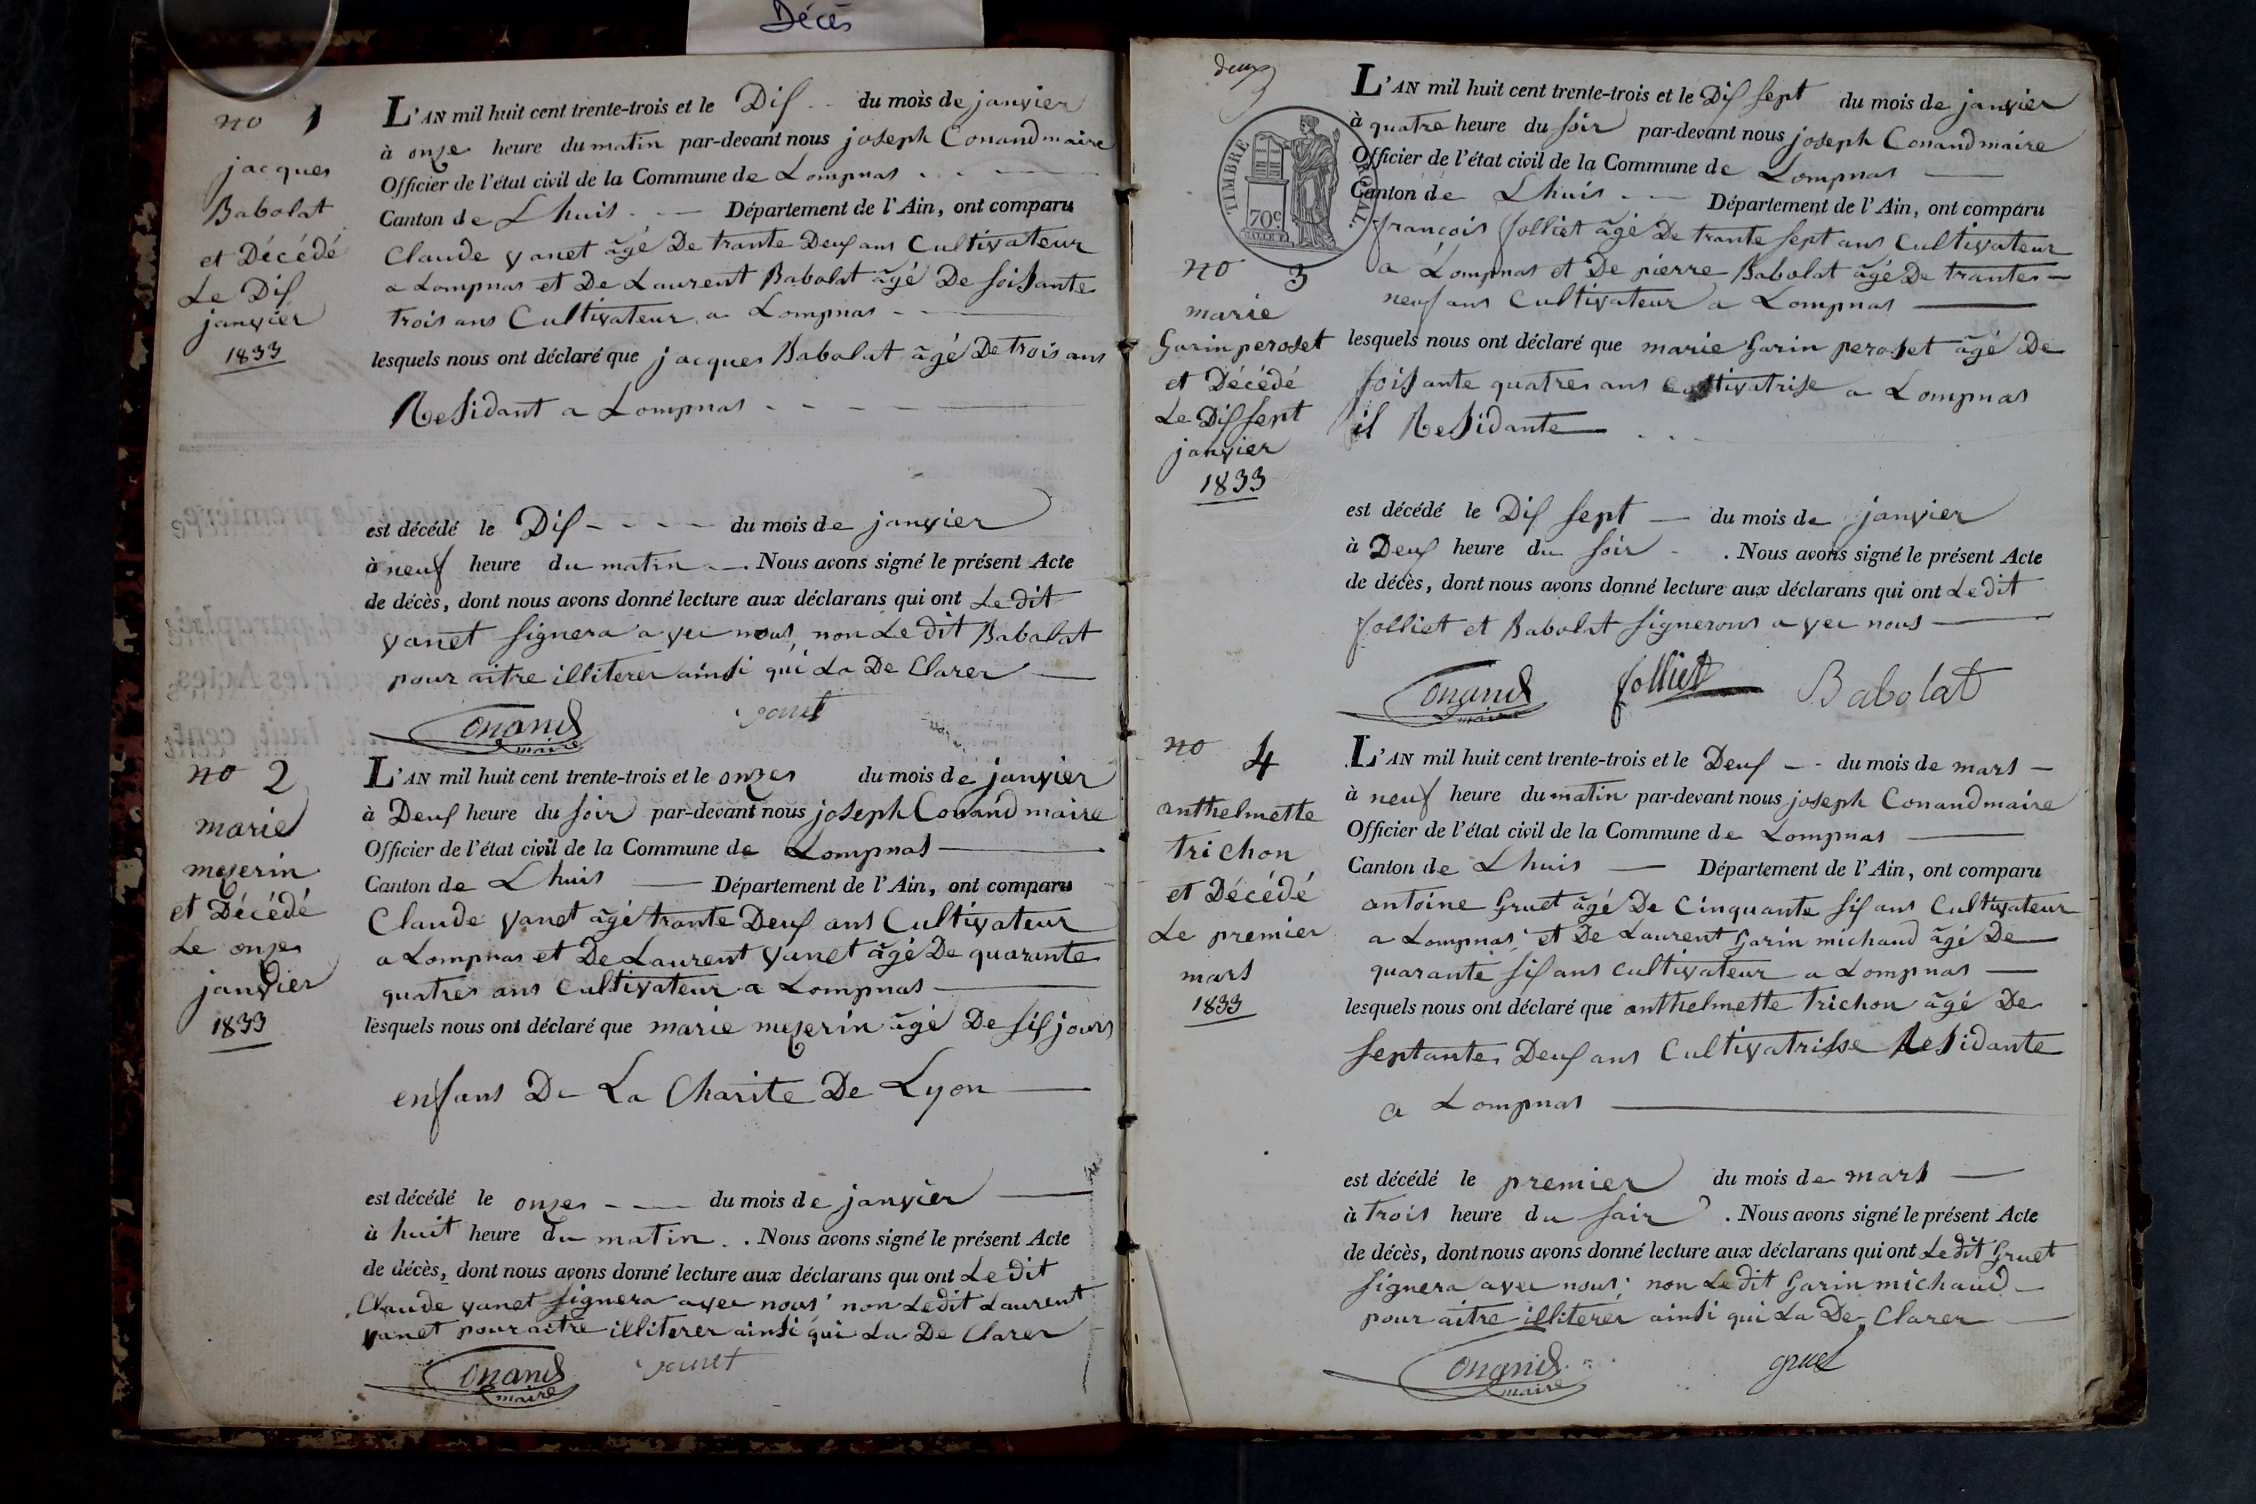 Décès
no 1
jacques
Babolat
et Décédé
Le Dix
janvier
1833
L'AN mil huit cent trente-trois et le Dix du mois de janvier
à onze heure du matin par-devant nous joseph Conand maire
Officier de l'état civil de la Commune de Lompnas
Canton de Lhuis Département de l'Ain, ont comparu
Claude vanet âgé De trante Deux ans Cultivateur
a Lompnas et De Laurent Babolat âgé De soisante
trois ans Cultivateur a Lompnas
lesquels nous ont déclaré que jacques Babolat âgé De trois ans
Residant a Lompnas
est décédé le Dix du mois de janvier
à neuf heure du matin . Nous avons signé le présent Acte
de décès, dont nous avons donné lecture aux déclarans qui ont Le dit
vanet signera avec nous, non Le dit Babolat
pour aitre illiterer ainsi qui La De Clarer
Conand maire vanet
no 2
marie
mejerin
et Décédé
Le onzes
janvier
1833
L'AN mil huit cent trente-trois et le onzes du mois de janvier
à Deux heure du soir par-devant nous joseph Conand maire
Officier de l'état civil de la Commune de Lompnas
Canton de Lhuis Département de l'Ain, ont comparu
Claude vanet âgé trante Deux ans Cultivateur
a Lompnas et De Laurent vanet âgé De quarante
quatres ans Cultivateur a Lompnas
lesquels nous ont déclaré que marie mejerin âgé De six jours
enfans De La Charite De Lyon
est décédé le onzes du mois de janvier
à huit heure du matin . Nous avons signé le présent Acte
de décès, dont nous avons donné lecture aux déclarans qui ont Le dit
Claude vanet signera avec nous' non Le dit Laurent
vanet pour aitre illiterer ainsi qui La De Clarer
Conand maire vanet
deux
TIMBRE ROYAL.
70c
no 3
marie
Garin peroset
et Décédé
Le Dix sept
janvier
1833
L'AN mil huit cent trente-trois et le Dix sept du mois de janvier
à quatre heure du soir par-devant nous joseph Conand maire
Officier de l'état civil de la Commune de Lompnas
Canton de Lhuis Département de l'Ain, ont comparu
françois jolliet âgé De trante sept ans Cultivateur
a Lompnas et De pierre Babolat âgé De trantes
neuf ans Cultivateur a Lompnas
lesquels nous ont déclaré que marie Garin peroset âgé De
soisante quatres ans cultivatrise a Lompnas
il Residante
est décédé le Dix sept du mois de janvier
à Deux heure du soir . Nous avons signé le présent Acte
de décès, dont nous avons donné lecture aux déclarans qui ont Le dit
jolliet et Babolat signerons avec nous
Conand maire jolliet Babolat
no 4
anthelmette
trichon
et Décédé
Le premier
mars
1833
L'AN mil huit cent trente-trois et le Deux du mois de mars
à neuf heure du matin par-devant nous joseph Conand maire
Officier de l'état civil de la Commune de Lompnas
Canton de Lhuis Département de l'Ain, ont comparu
antoine Gruet âgé De Cinquante six ans Cultivateur
a Lompnas et De Laurent Garin michaud âgé De
quarante six ans cultivateur a Lompnas
lesquels nous ont déclaré que anthelmette trichon âgé De
septantes Deux ans Cultivatrisse Residante
a Lompnas
est décédé le premier du mois de mars
à trois heure du sair . Nous avons signé le présent Acte
de décès, dont nous avons donné lecture aux déclarans qui ont Le dit Gruet
signera avec nous; non Le dit Garin michaud
pour aitre illiterer ainsi qui La De Clarer
Conand maire gruet